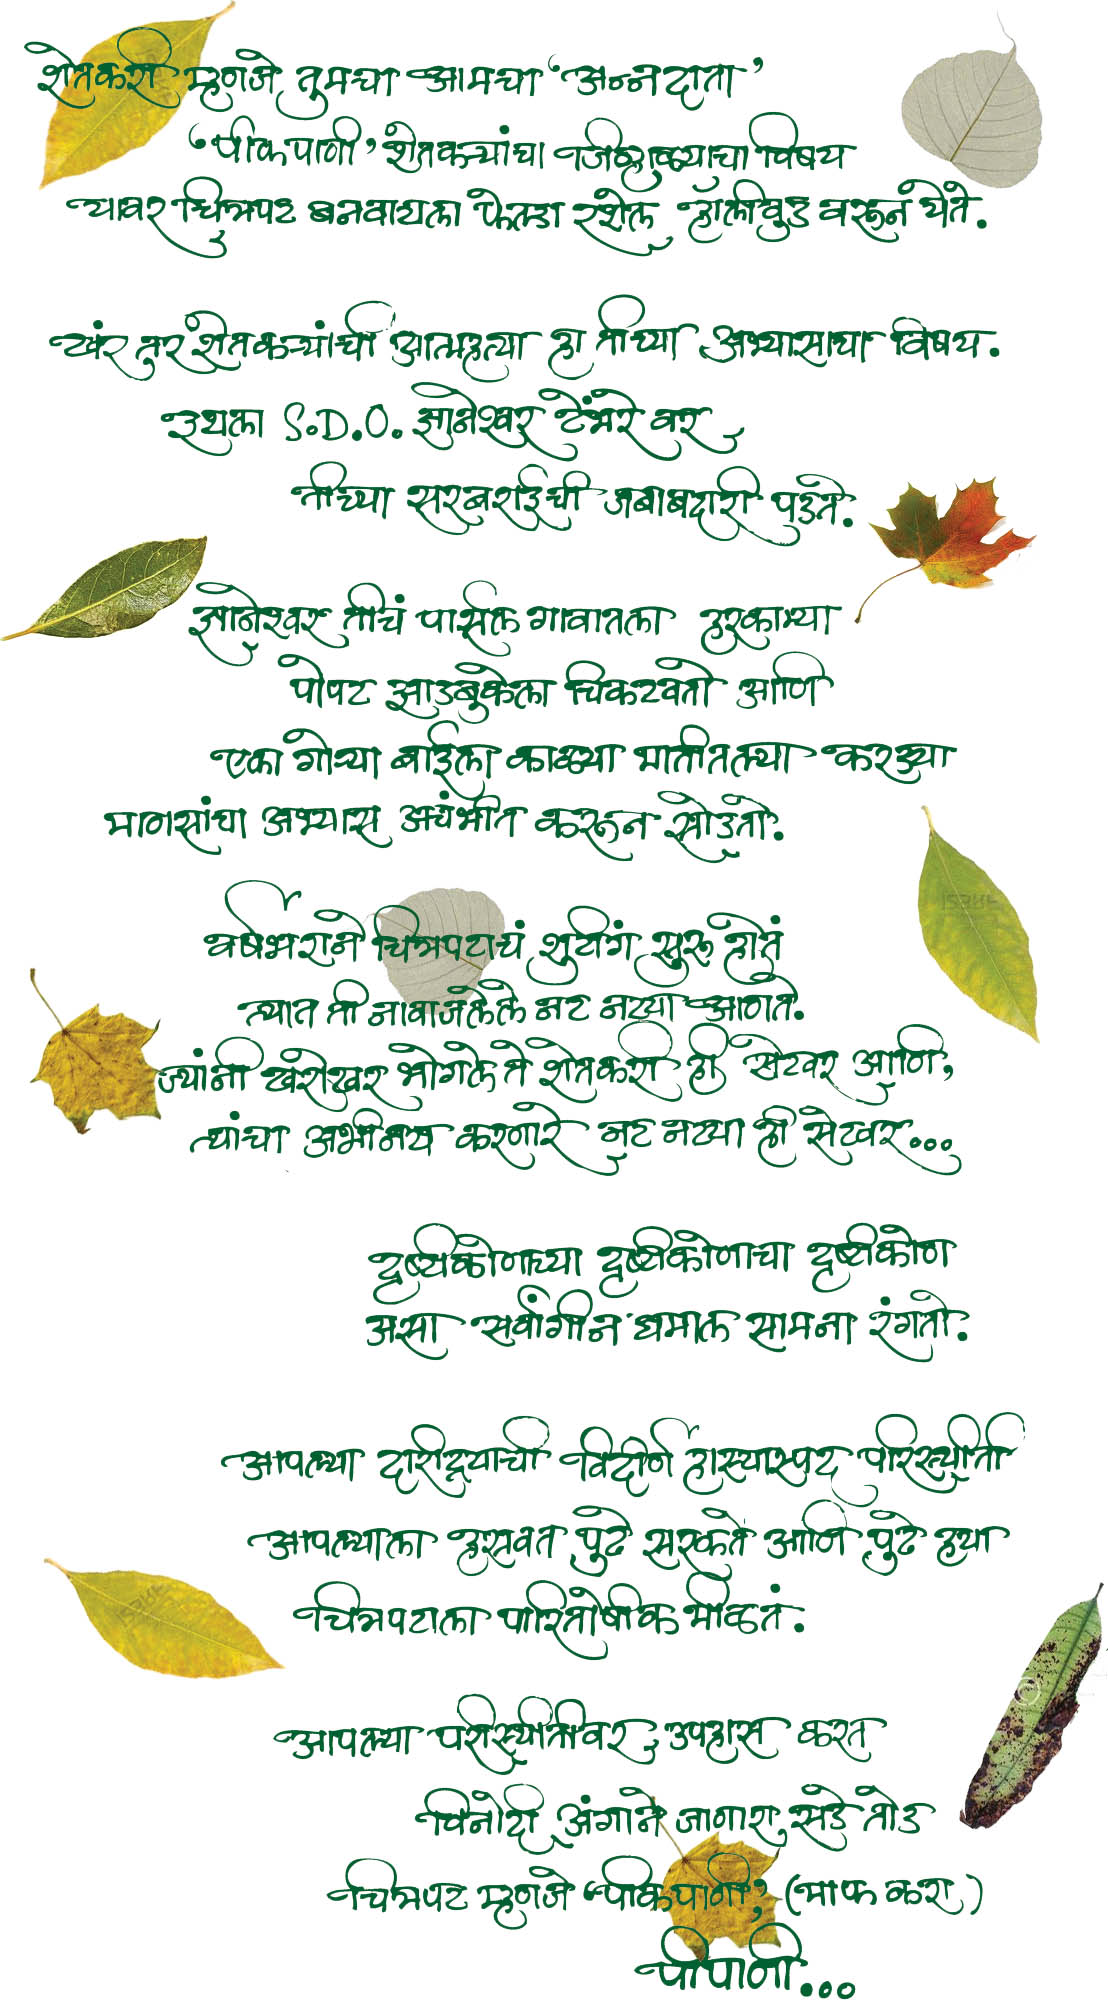 शेतकरी म्हणजे तुमचा आमचा ‘अन्नदाता’
‘पीकपाणी’ शेतकऱ्यांचा जिव्हाळ्याचा विषय
यावर चित्रपट बनवायला फेलडा रशेल हॉलीवुड वरून येते.
खंर तर शेतकऱ्यांची आत्महत्या हा तीच्या अभ्यासाचा विषय.
इथला S.D.O. ज्ञानेश्वर टेंभरे वर
तीच्या सरबराईची जबाबदारी पडते.
ज्ञानेश्वर तीचं पार्सल गावातला हरकाम्या
पोपट झाडबुकेला चिकटवतो आणि
एका गोऱ्या बाईला काळ्या मातीतल्या करड्या
माणसांचा अभ्यास अचंभीत करून सोडतो.
वर्षभराने चित्रपटाचं शुटींग सुरू होतं
त्यात ती नावाजलेले नट नट्या आणते.
ज्यांनी खरोखर भोगले ते शेतकरी ही सेटवर आणि,
त्यांचा अभीनय करणारे नट नट्या ही सेटवर...
दृष्टीकोणाच्या दृष्टीकोणाचा दृष्टीकोण
असा सर्वांगीन धमाल सामना रंगतो.
आपल्या दारीद्र्याची विदीर्ण हास्यास्पद परिस्थीती
आपल्याला हसवत पुढे सरकते आणि पुढे ह्या
चित्रपटाला पारितोषीक मीळतं.
आपल्या परीस्थीतीवर उपहास करत
विनोदी अंगाने जाणारा संडे तोड
चित्रपट म्हणजे ‘पीकपाणी’ (माफ करा)
पीपाणी...